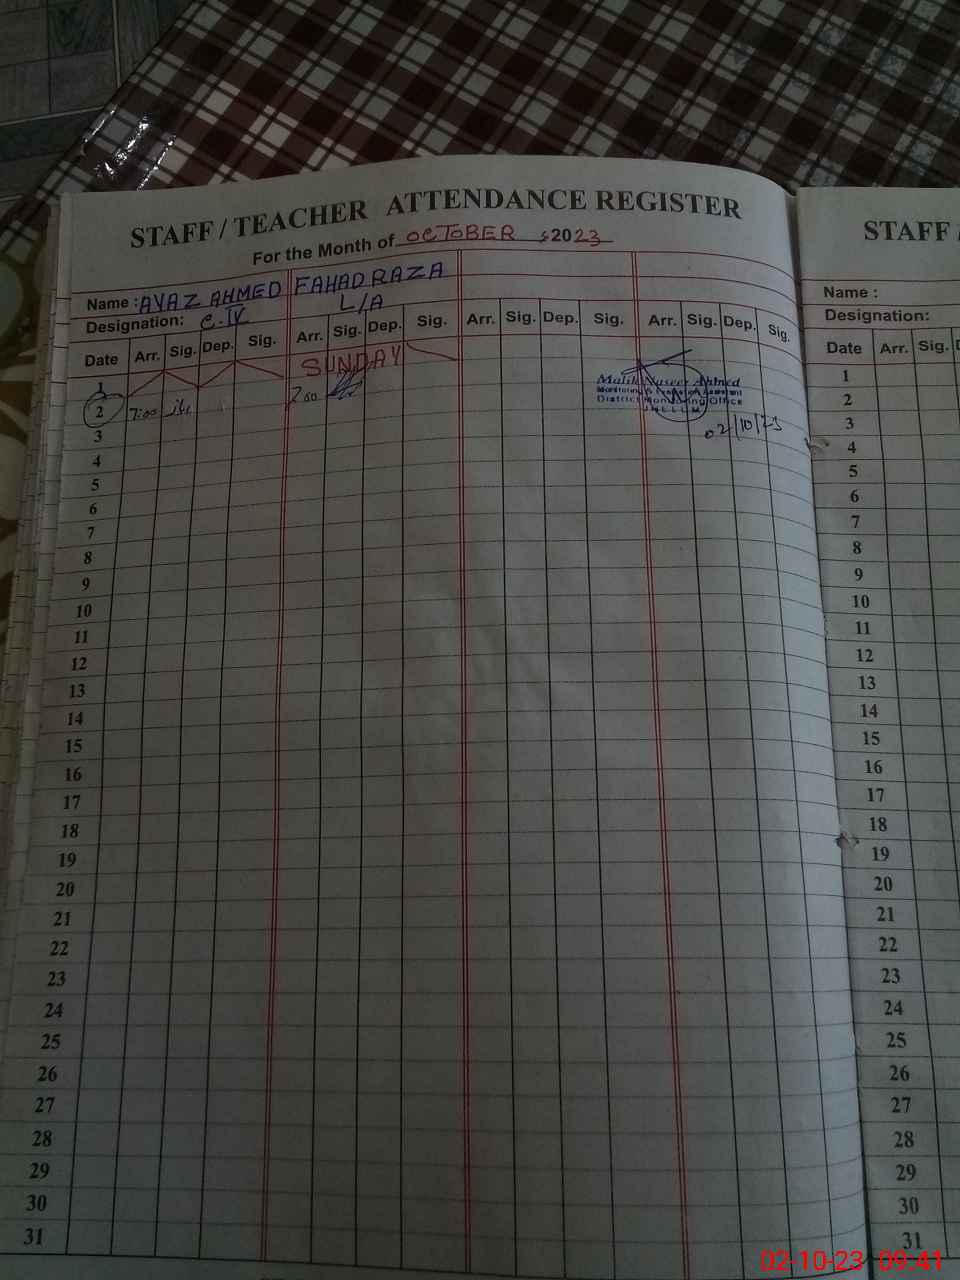 STAFF / TEACHER ATTENDANCE REGISTER
For the Month of OCTOBER 2023
Name : AYAZ AHMED FAHAD RAZA
Designation: C.IV L/A
Date Arr. Sig. Dep. Sig. Arr. Sig. Dep. Sig. Arr. Sig. Dep. Sig. Arr. Sig. Dep. Sig.
1 SUNDAY
2 7:00 7:00
Malik Naseer Ahmed
Monitoring & Evaluation Assistant
District Monitoring Office
JHELUM
02/10/23
3
4
5
6
7
8
9
10
11
12
13
14
15
16
17
18
19
20
21
22
23
24
25
26
27
28
29
30
31
STAFF /
Name :
Designation:
Date Arr. Sig. D
1
2
3
4
5
6
7
8
9
10
11
12
13
14
15
16
17
18
19
20
21
22
23
24
25
26
27
28
29
30
31
02-10-23 09:41